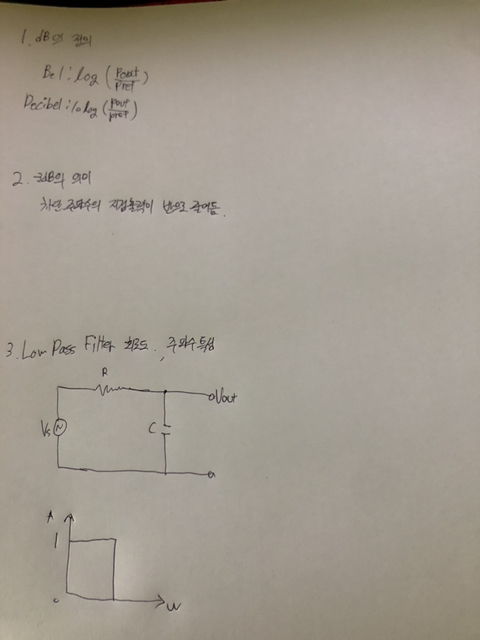 1. dB의 정의
Bel : log (Pout/Pref)
Decibel : 10 log (Pout/Pref)
2. -3dB의 의미
차단주파수의 지점 출력이 반으로 줄어듦.
3. Low Pass Filter 회로도, 주파수 특성
R
Vout
Vs
C
A
1
0
w